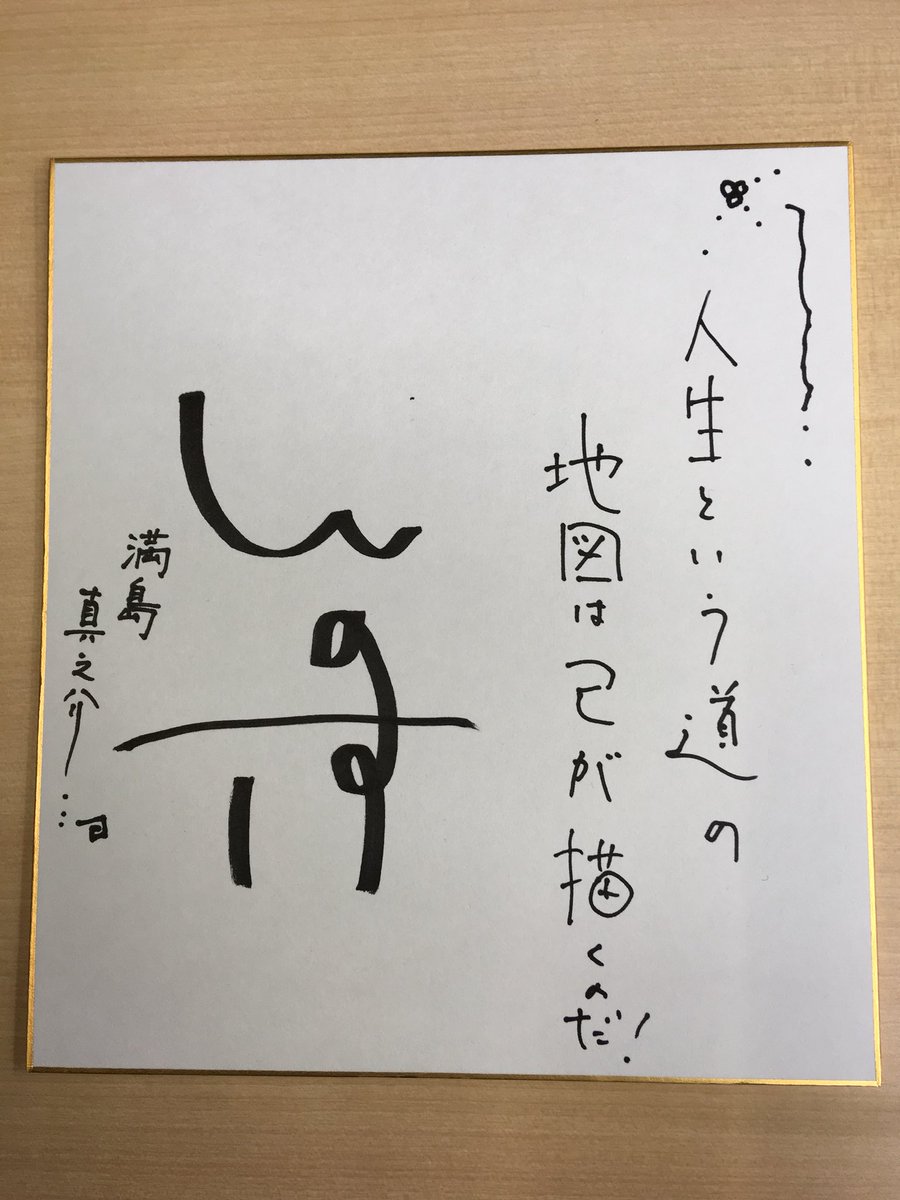 人生という道の
地図は己が描くのだ!
満島
真之介